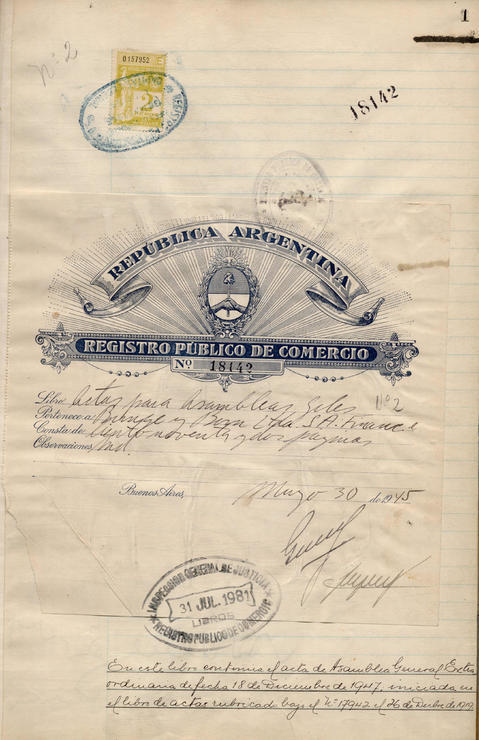 1
Nº 2
0157952
2
18142
REPÚBLICA ARGENTINA
REGISTRO PÚBLICO DE COMERCIO
Nº 18142
Libro Actas para Asambleas Gles nº 2
Pertenece a Bunge y Born Ltda. S.A. Financ e
Consta de Ciento noventa y dos páginas
Observaciones
Buenos Aires, Mayo 30 de 1945
INSPECCION GENERAL DE JUSTICIA
31 JUL. 1981
LIBROS
REGISTRO PUBLICO DE COMERCIO
En este libro continua el acta de Asamblea General Extra
ordinaria de fecha 18 de Diciembre de 1947, iniciada en
el libro de actas rubricado bajo el Nº 17942 el 26 de